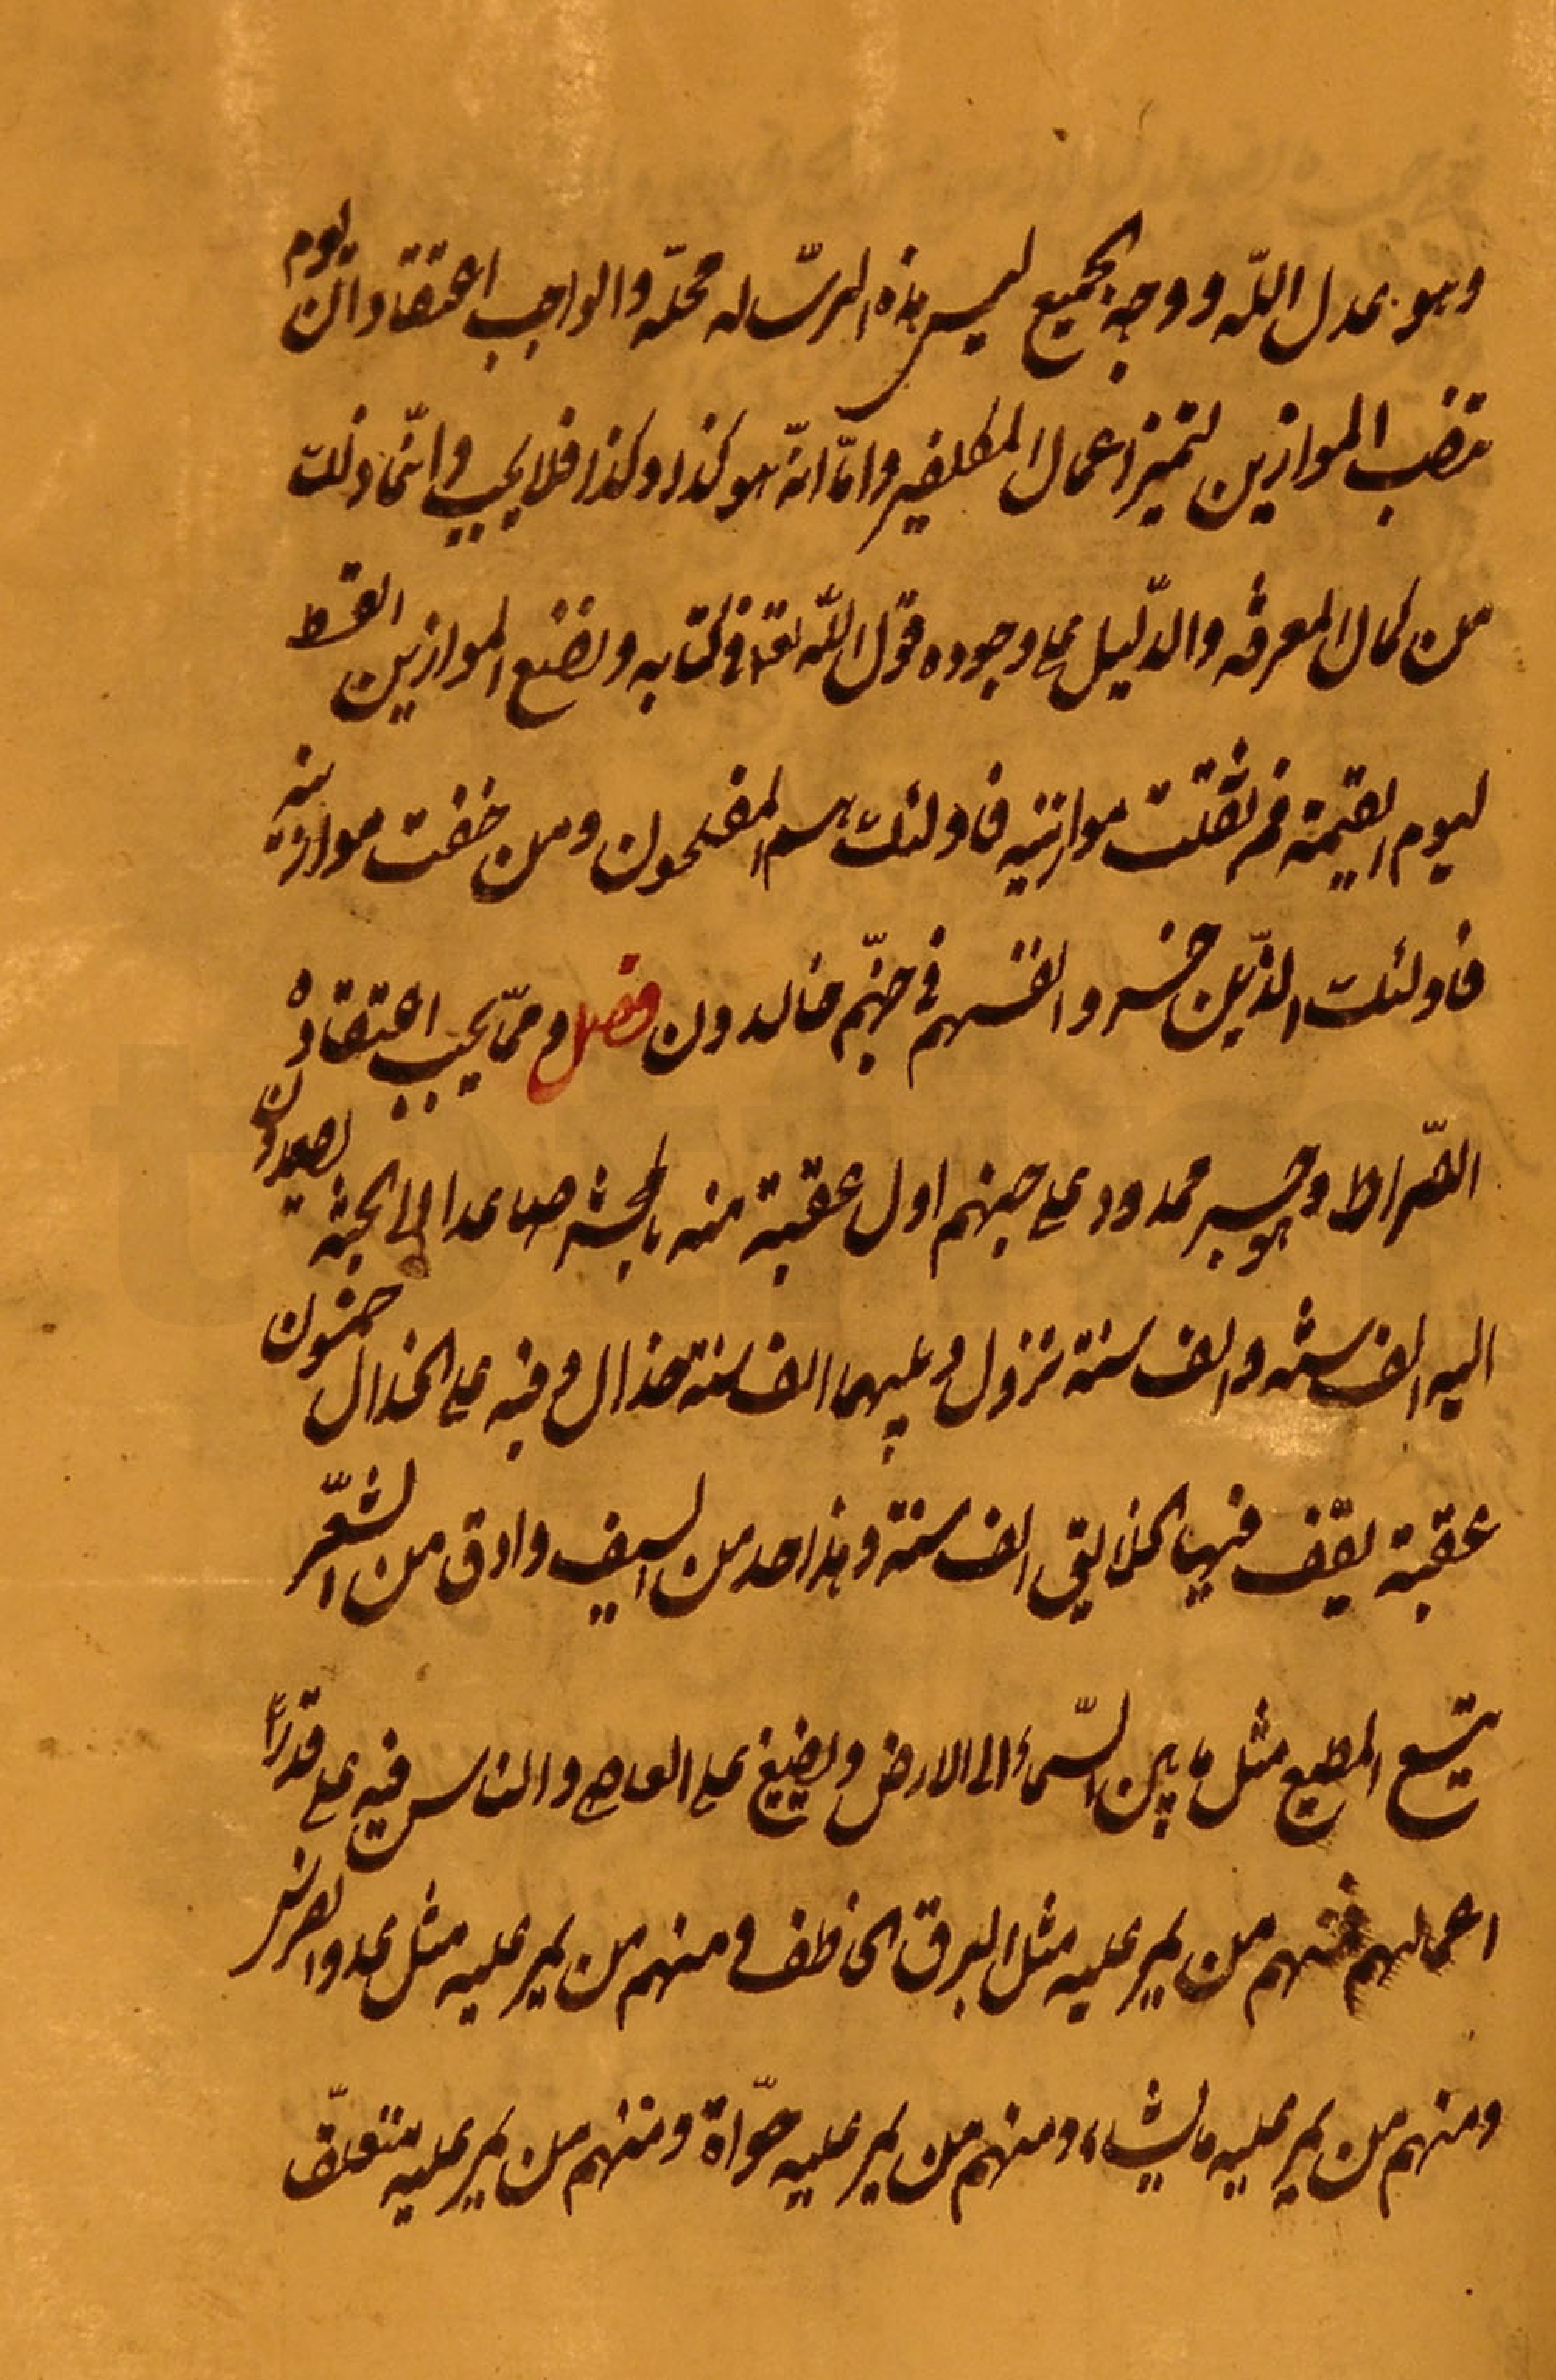 وهو عدل اللّه ووجه الجميع ليس هذه الرسّاله محلّه والواجب اعتقاد ان يوم
تنضب الموازين لتميز اعمال المكلفين وامّا انّه هو كذا وكذا فلا يجب وانّما ذلك
من كمال المعرفه والدّليل على وجوده قول اللّه تعا فى كتابه ونضع الموازين القسط
ليوم القيمة فمن ثقلت موازينه فاولئك هم المفلحون ومن خفت موازينه
فاولئك الذّين خسروا انفسهم فى جهنّم خالدون فصل وممّا يجب اعتقاده
الصّراط وهو جسر ممدود على جهنم اول عقبة منه بالمحشر صاعدا الى الجنة يصعدون
اليه الف سنه والف سنة نزول وبينهما الف سنة حذال وفيه على الحذال خمسون
عقبة يقف فيها الخلايق الف سنة وهذا احد من السيف وادق من الشعّر
يتسع المطيع مثل ما بين السّماء الى الارض ويضيق على العاصى والناس فيه على قدر
اعمالهم فمنهم من يمر عليه مثل البرق الخاطف ومنهم من يمر عليه مثل عدو الفرس
ومنهم من يمر عليه ماشيا ومنهم من يمر عليه حوّاة ومنهم من يمر عليه متعلّق